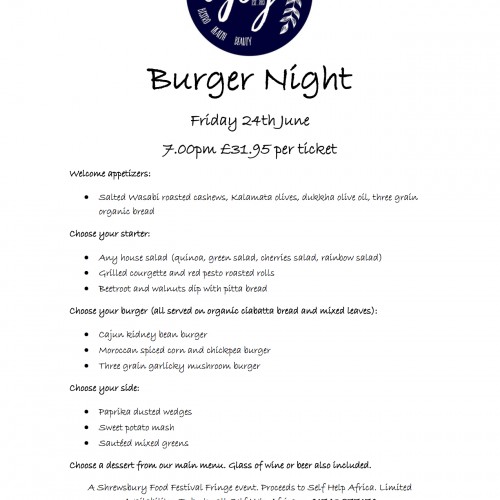 BISTRO HEALTH BEAUTY
Burger Night
Friday 24th June
7.00pm £31.95 per ticket
Welcome appetizers:
• Salted Wasabi roasted cashews, Kalamata olives, dukkha olive oil, three grain
organic bread
Choose your starter:
• Any house salad (quinoa, green salad, cherries salad, rainbow salad)
• Grilled courgette and red pesto roasted rolls
• Beetroot and walnuts dip with pitta bread
Choose your burger (all served on organic ciabatta bread and mixed leaves):
• Cajun kidney bean burger
• Moroccan spiced corn and chickpea burger
• Three grain garlicky mushroom burger
Choose your side:
• Paprika dusted wedges
• Sweet potato mash
• Sautéed mixed greens
Choose a dessert from our main menu. Glass of wine or beer also included.
A Shrewsbury Food Festival Fringe event. Proceeds to Self Help Africa. Limited